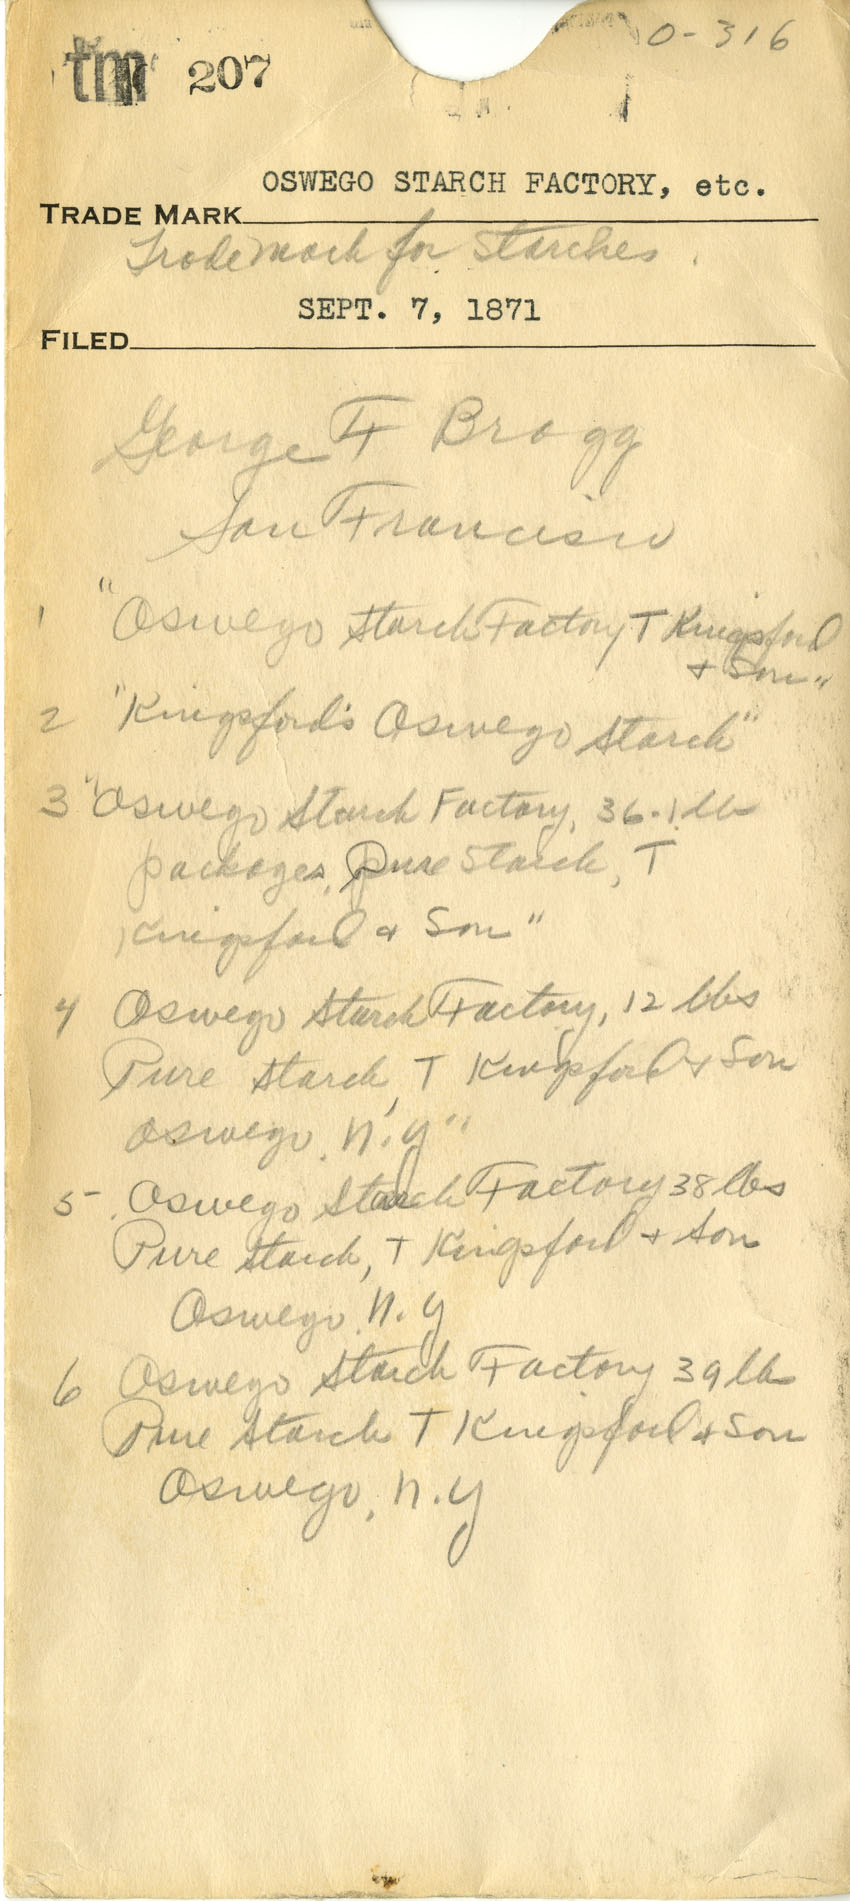 O-316
tm 207
OSWEGO STARCH FACTORY, etc.
TRADE MARK
Trademark for Starches.
SEPT. 7, 1871
FILED
George F Bragg
San Francisco
1 "Oswego Starch Factory T Kingsford
+ Son"
2 "Kingsford's Oswego Starch"
3 "Oswego Starch Factory, 36-1 lb
packages, Pure Starch, T
Kingsford & Son"
4 Oswego Starch Factory, 12 lbs
Pure Starch, T Kingsford & Son
Oswego, N.Y"
5- Oswego Starch Factory 38 lbs
Pure Starch, T Kingsford + Son
Oswego N.Y
6 Oswego Starch Factory 39 lb
Pure Starch T Kingsford & Son
Oswego, N.Y